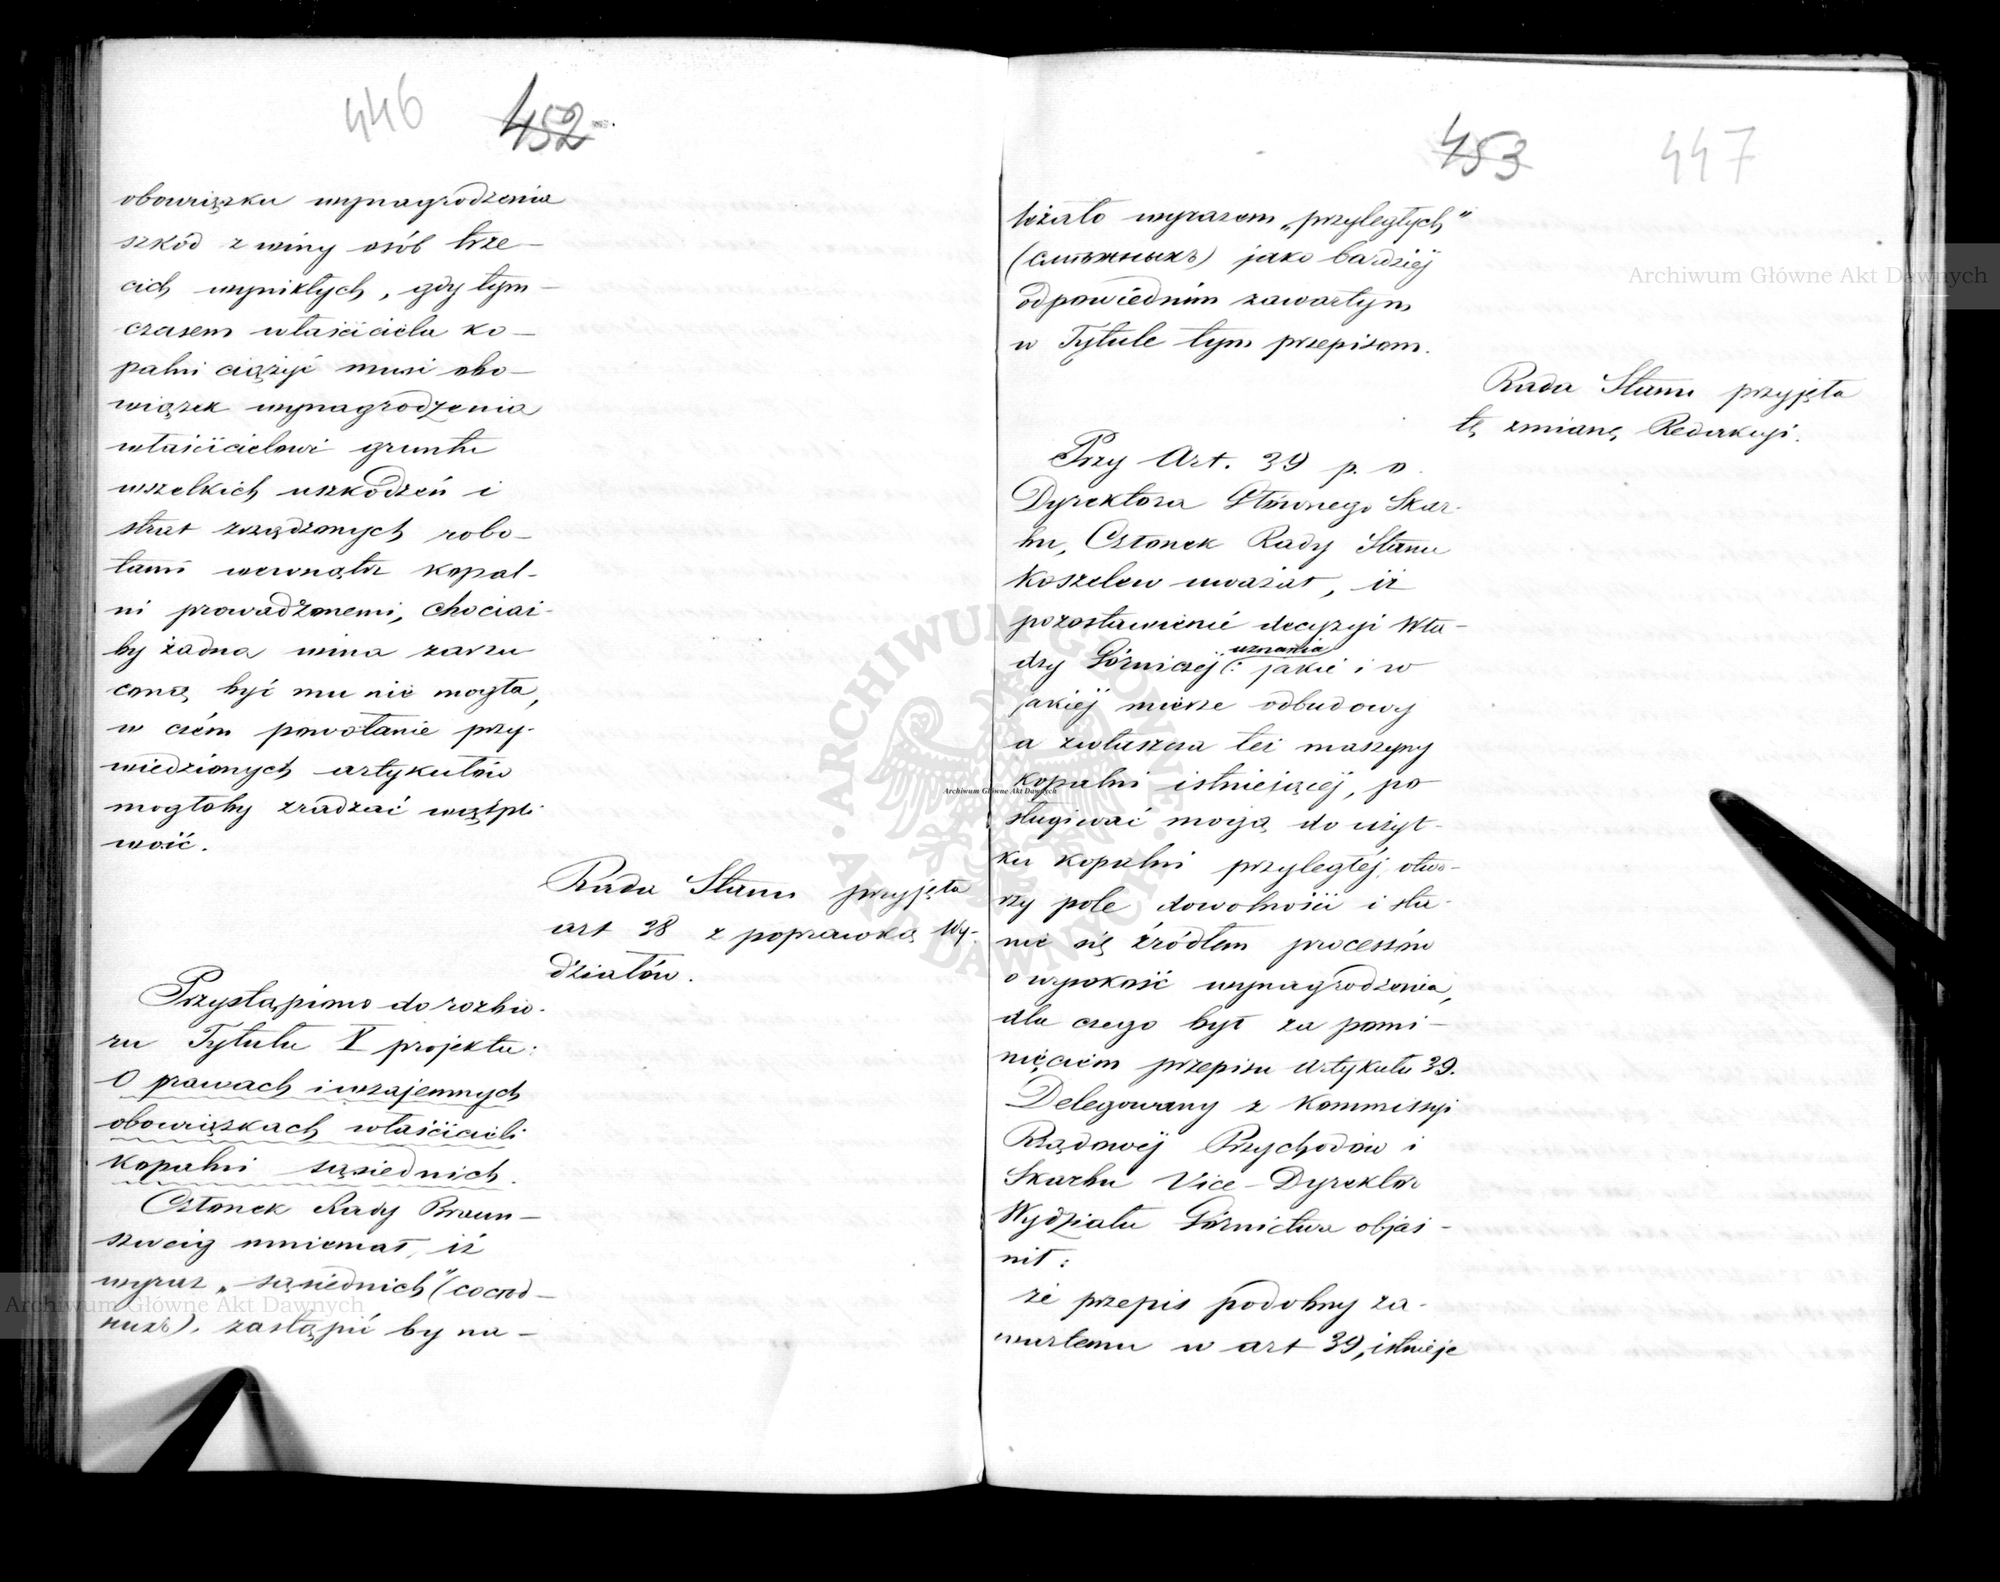 446 452
obowiązku wynagrodzenia
szkód z winy osób trze-
cich wynikłych, gdy tym-
czasem właściciela ko-
palni ciążyć musi obo-
wiązek wynagrodzenia
właścicielowi gruntu
wszelkich uszkodzeń i
strat zrządzonych robo-
tami wewnątrz kopal-
ni prowadzonemi, chociaż-
by żadna wina zarzu
coną być mu nie mogła,
w czém powołanie przy-
wiedzionych artykułów
mogłoby zradzać wątpli
wość.
Rada Stanu przyjęła
art 38 z poprawką Wy-
działów.
Przystąpiono do rozbio-
ru Tytułu V projektu:
O prawach i wzajemnych
obowiązkach właścicieli
kopalni sąsiednich.
Członek Rady Braun-
szweig mniemał, iż
wyraz „sąsiednich" (сосѣд-
нихъ), zastąpić by na-
453 447
leżało wyrazem „przyległych"
(смѣжныхъ) jako bardziéj
odpowiednim zawartym
w Tytule tym przepisom.
Rada Stanu przyjęła
tę zmianę Redakcyi.
Przy Art. 39 p. o.
Dyrektora Głównego Skar-
bu, Członek Rady Stanu
Koszelew uważał, iż
pozostawienie decyzyi Wła-
uznania
dzy Górniczéj (: jakie i w
jakiéj mierze odbudowy
a zwłaszcza też maszyny
kopalni istniejącéj, po
sługiwać mogą do użyt-
ku kopalni przyległéj, otwo-
rzy pole dowolności i sta-
nie się źródłem processów
o wysokość wynagrodzenia,
dla czego był za pomi-
nięciem przepisu Artykułu 39.
Delegowany z Kommissyi
Rządowéj Przychodów i
Skarbu Vice-Dyrektor
Wydziału Górnictwa objaś-
nił:
że przepis podobny za-
wartemu w art 39, istnieje
Archiwum Główne Akt Dawnych
Archiwum Główne Akt Dawnych
Archiwum Główne Akt Dawnych
ARCHIWUM GŁÓWNE AKT DAWNYCH